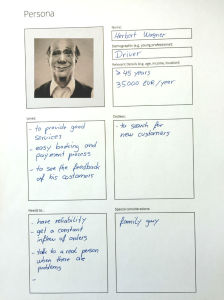 Persona
Name:
Herbert Wagner
Demographic (e.g. young professional):
Driver
Relevant Details (e.g. age, income, location):
≥ 45 years
35.000 EUR/year
Loves:
- to provide good
services
- easy booking and
payment process
- to see the feedback
of his customers
Dislikes:
- to search for
new customers
Needs to...
- have reliability
- get a constant
inflow of orders
- talk to a real person
when there are
problems
-
Special considerations:
family guy